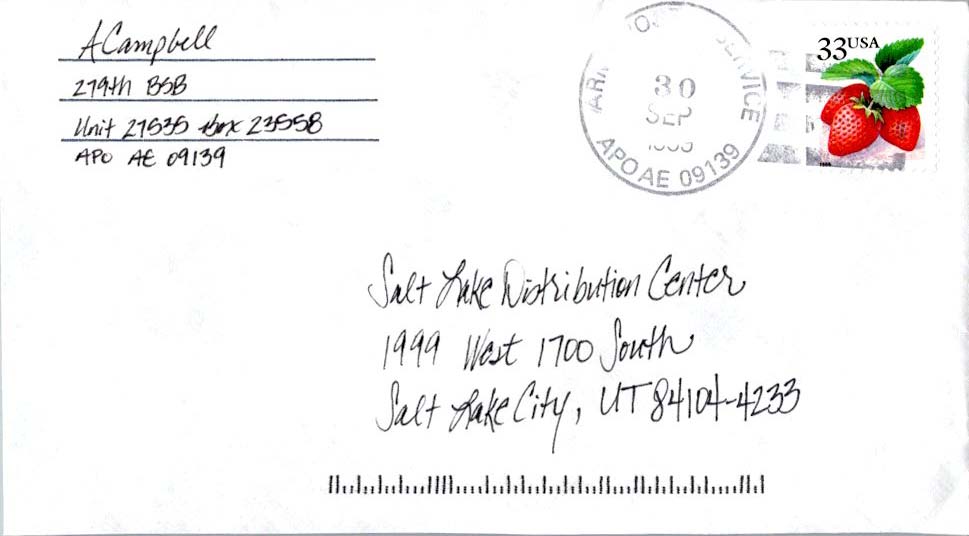 A Campbell
279th BSB
Unit 27535 Box 23558
APO AE 09139
SERVICE
30
SEP
APO AE 09139
33USA
Salt Lake Distribution Center
1999 West 1700 South
Salt Lake City, UT 84104-4233